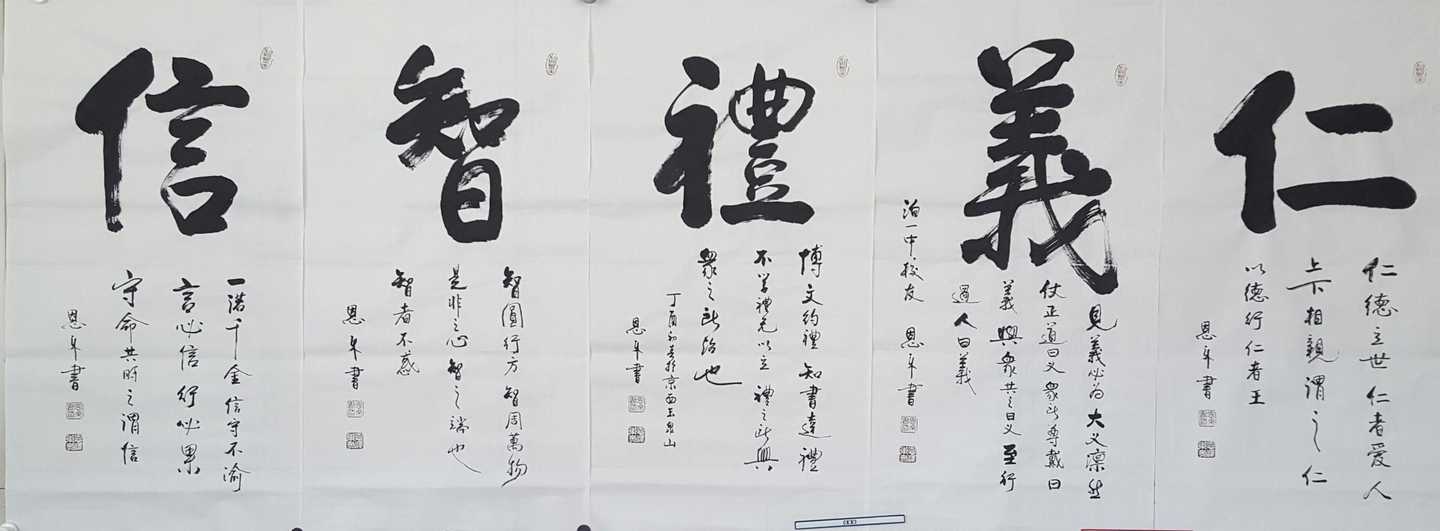 仁
仁德立世仁者爱人
上下相親謂之仁
以德行仁者王
恩年書
義
見義必为大义凛然
仗正道曰义衆所尊戴曰
義與衆共之曰义至行
過人曰義
泊一中校友 恩年書
禮
博文约禮知書達禮
不学禮无以立禮之所興
衆之所治也
丁酉初春於京西玉泉山
恩年書
智
智圓行方智周萬物
是非之心智之端也
智者不惑
恩年書
信
一諾千金信守不渝
言必信行必果
守命共時之謂信
恩年書